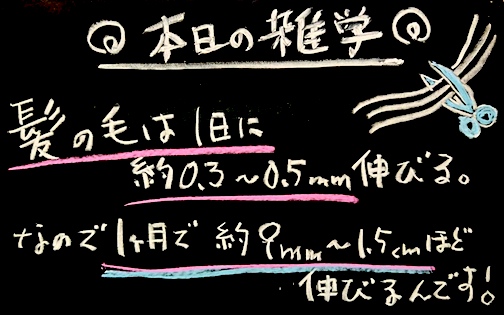 本日の雑学
髪の毛は1日に
約0.3～0.5mm伸びる。
なので1ヶ月で約9mm～1.5cmほど
伸びるんです!